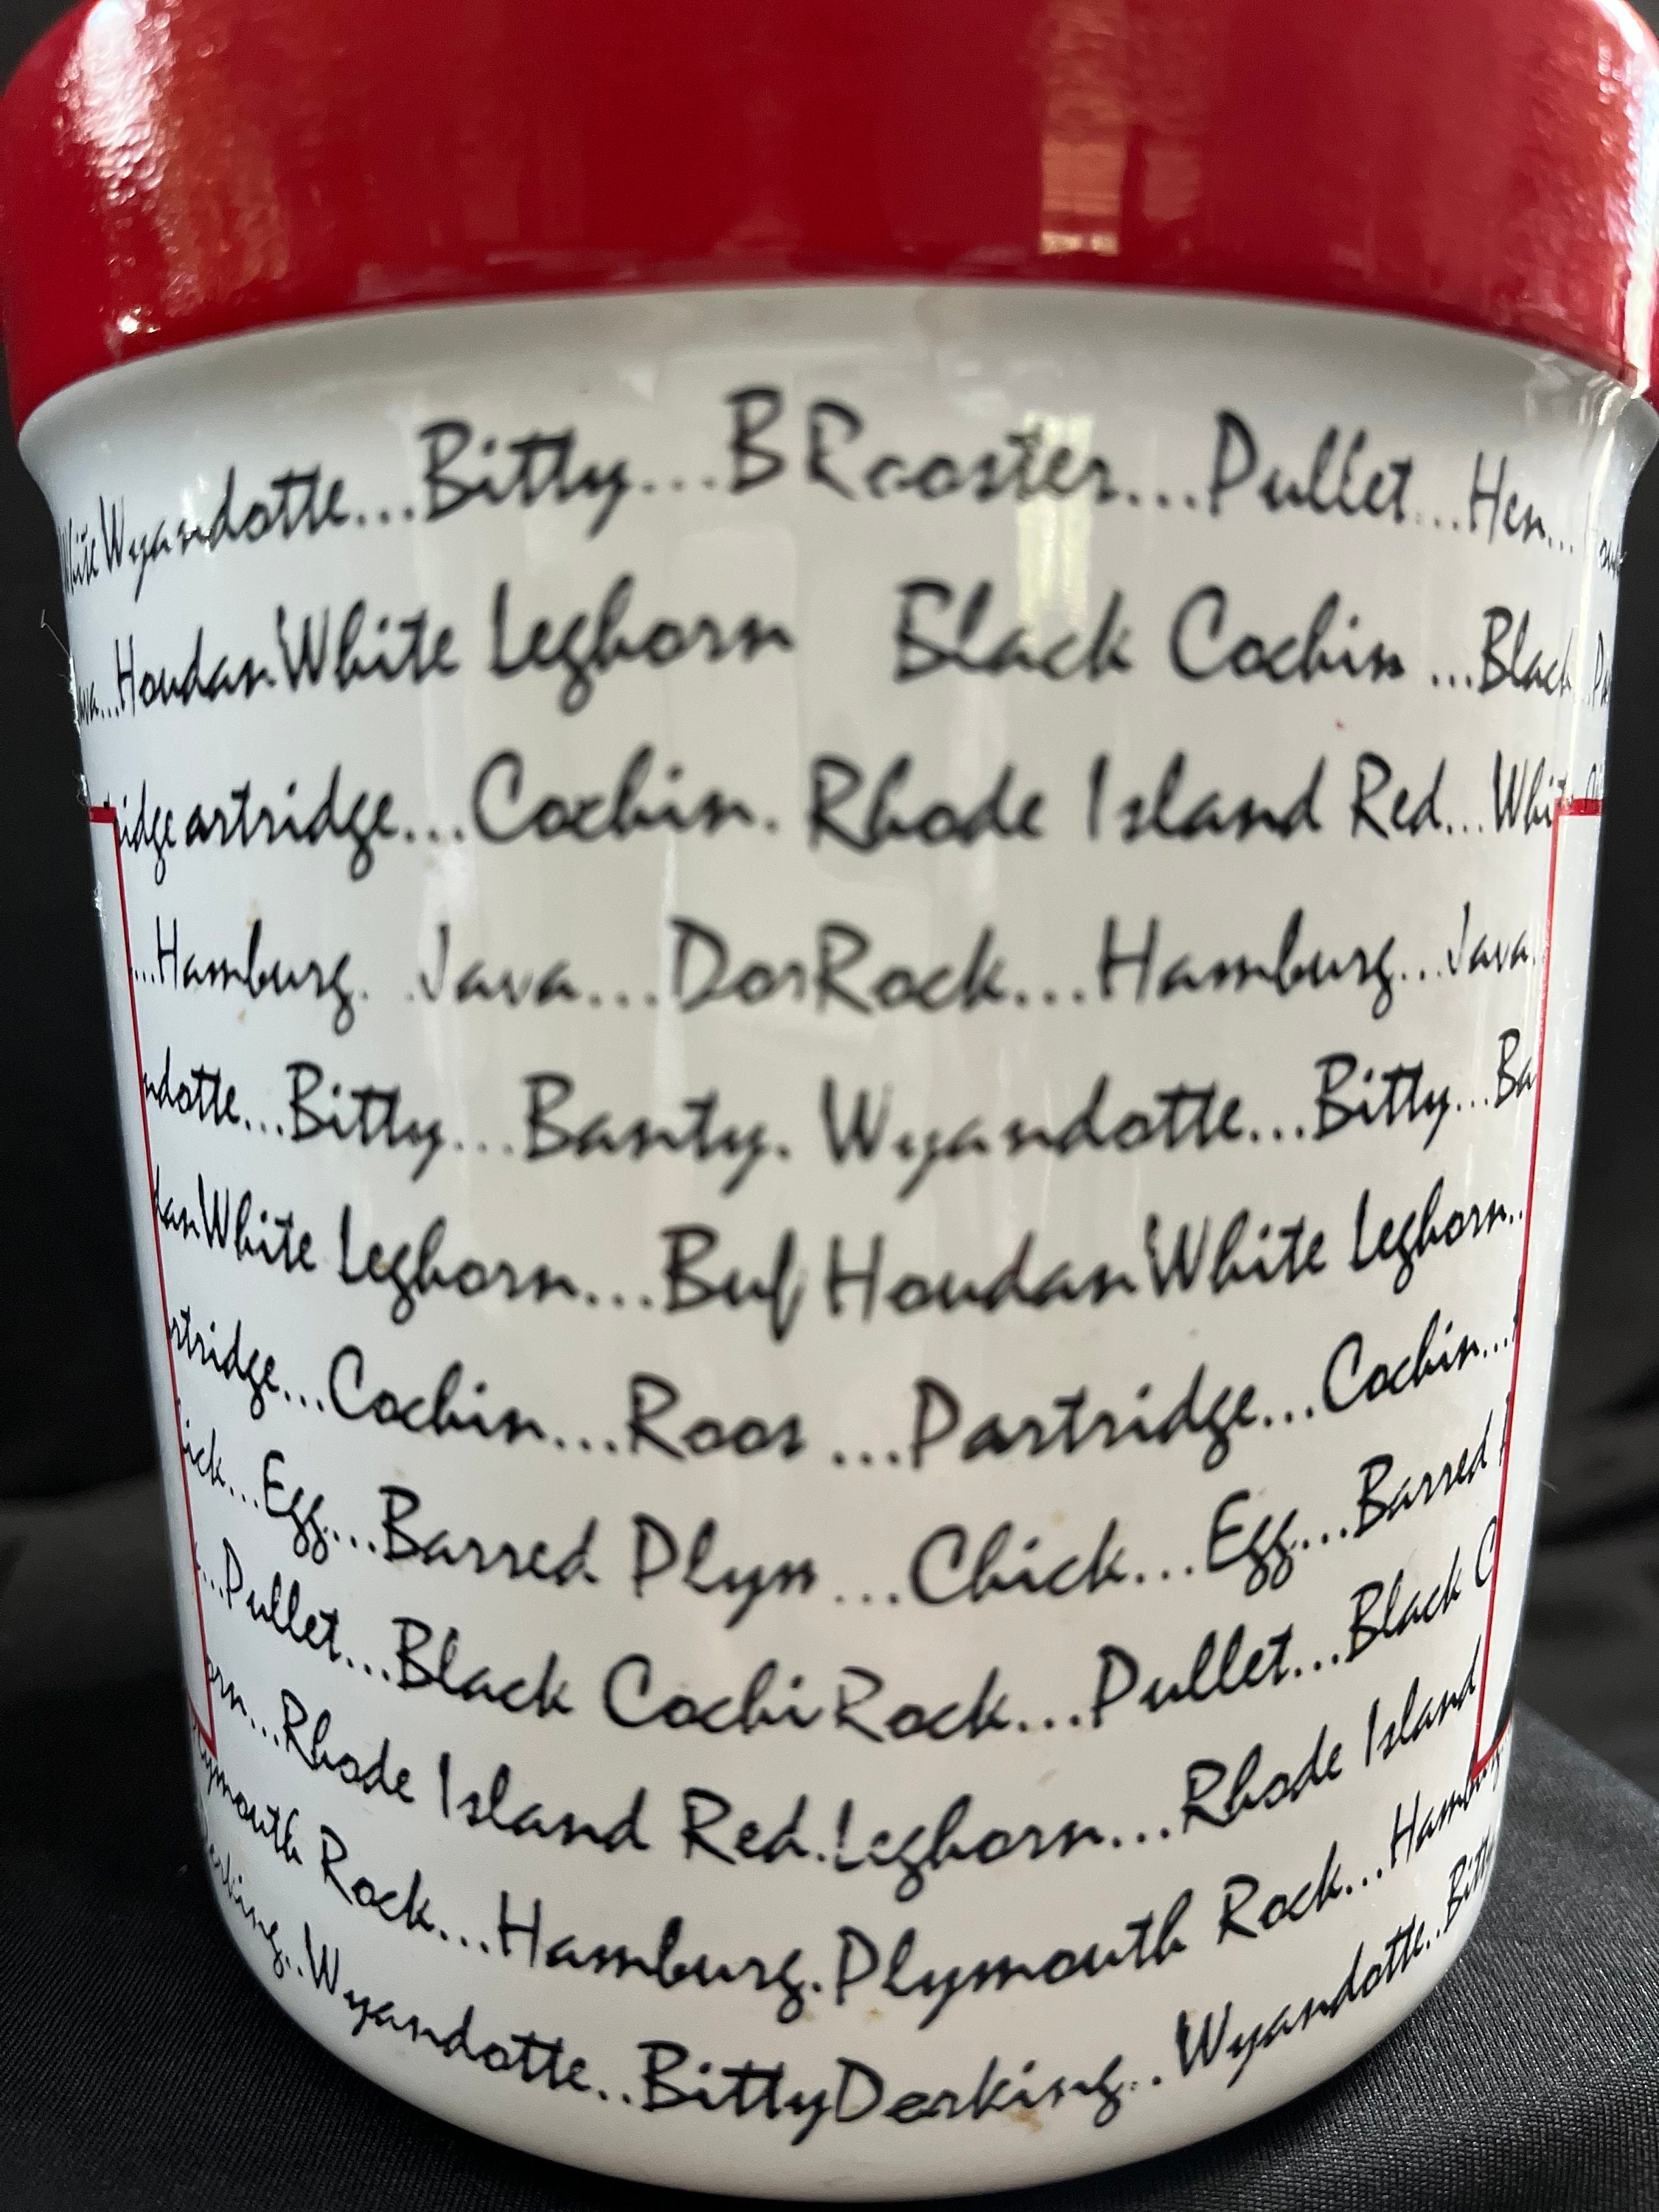 White Wyandotte...Bitty...B Rooster...Pullet...Hen...
ava...Houdan White Leghorn Black Cochin ...Black
idge artridge...Cochin. Rhode Island Red...Whi
...Hamburg. Java...Dor Rock...Hamburg...Java.
ndotte...Bitty...Banty. Wyandotte...Bitty...Ba
dan White Leghorn...Buf Houdan White Leghorn..
rtridge...Cochin...Roos ...Partridge...Cochin...
ick...Egg...Barred Plym ...Chick...Egg...Barred
...Pullet...Black Cochi Rock...Pullet...Black C
orn...Rhode Island Red.Leghorn...Rhode Island
lymouth Rock...Hamburg.Plymouth Rock...Hamburg
erking..Wyandotte..Bitty Derking..Wyandotte..Bitt